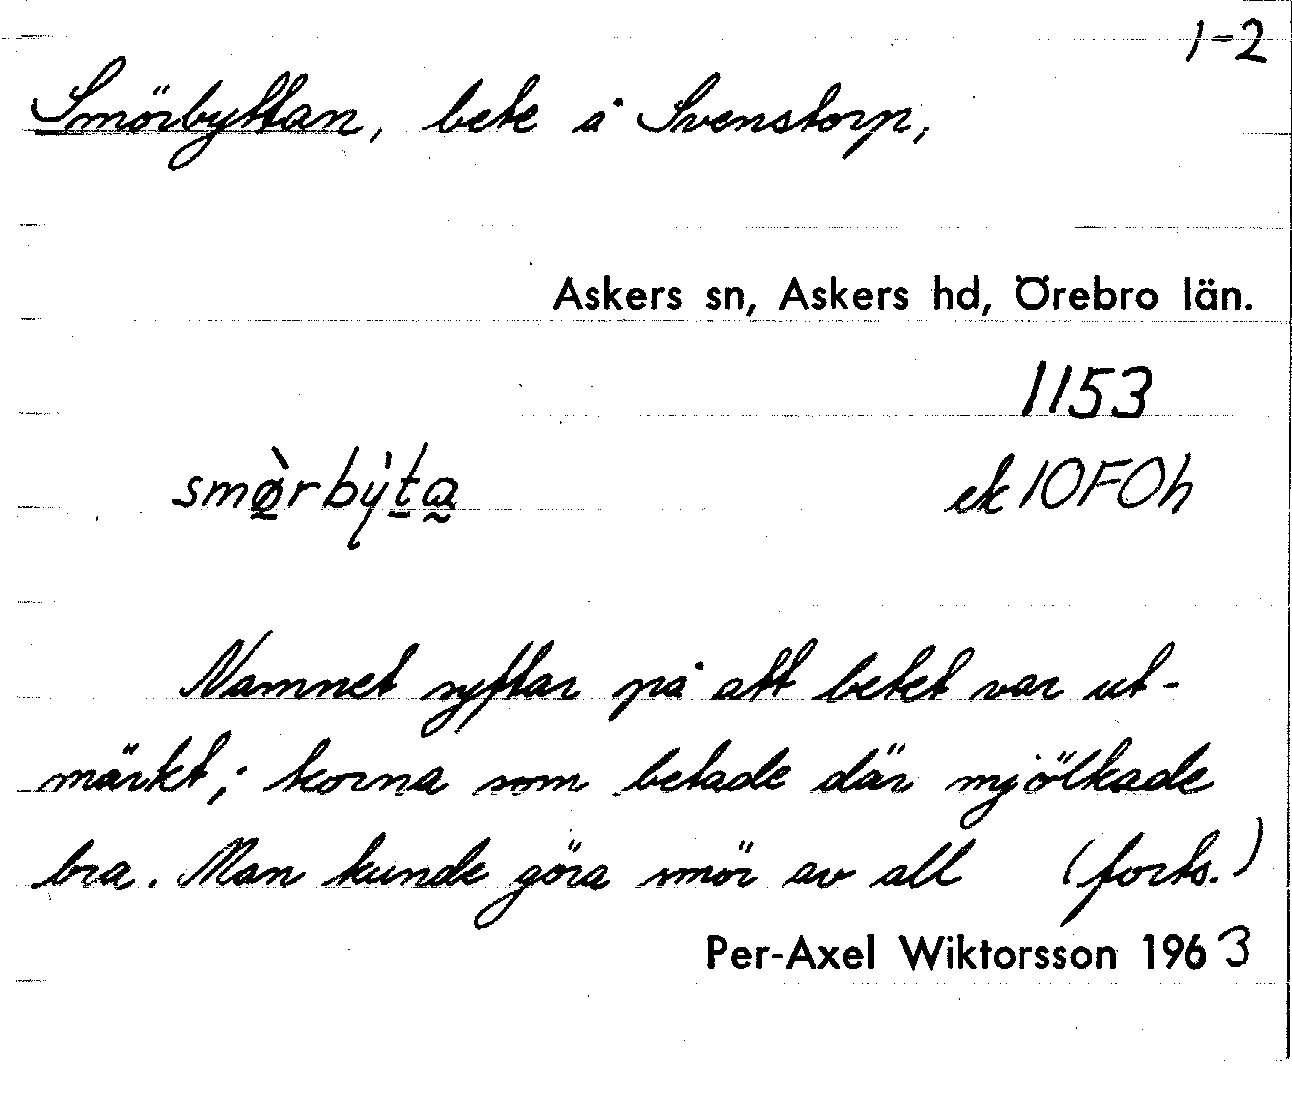 1-2
Smörbyttan, bete å Svenstorp,
Askers sn, Askers hd, Örebro län.
1153
smø̠̀rbỳt̠a̰ ek 10F0h
Namnet syftar på att betet var ut-
märkt; korna som betade där mjölkade
bra. Man kunde göra smör av all (forts.)
Per-Axel Wiktorsson 1963